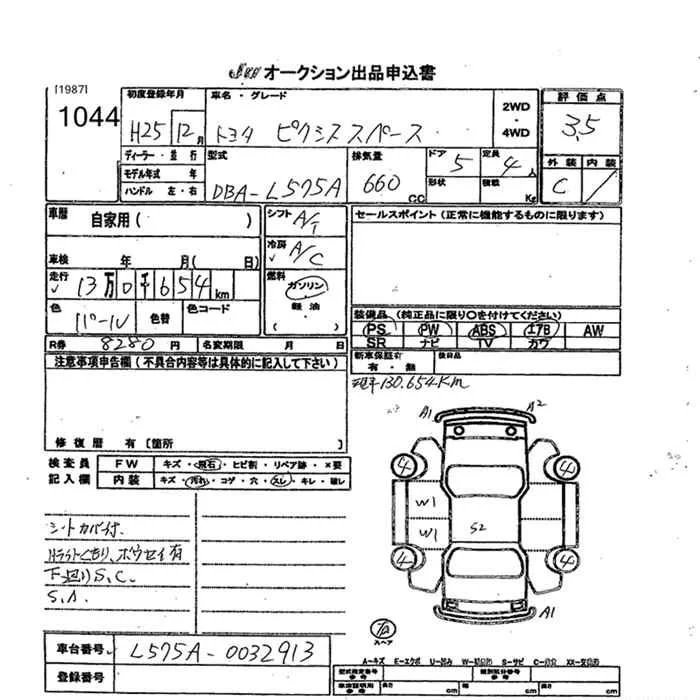 オークション出品申込書
[1987]
1044
初度登録年月
H25 12月
車名・グレード
トヨタ ピクシススペース
2WD
・
4WD
評価点
3.5
ディーラー・並行
モデル年式 年
ハンドル 左・右
型式
DBA-L575A
排気量
660 CC
ドア 5
形状
定員 4人
積載 Kg
外装 内装
C /
車歴 自家用( )
車検 年 月( 日)
走行 13万0千654km
色 パール 色替 色コード
シフト A/T
冷房 A/C
燃料
ガソリン
・
軽油
( )
セールスポイント(正常に機能するものに限ります)
装備品(純正品に限り○を付けてください)
PS PW ABS エアB AW
SR ナビ TV カワ
R券 8280円 名変期限 月 日
新車保証有 後日品
有・無
注意事項申告欄(不具合内容等は具体的に記入して下さい)
現メータ130.654Km
修復歴 有〔箇所
検査員
記入欄
FW キズ・飛石・ヒビ割・リペア跡・×要
内装 キズ・汚れ・コゲ・穴・スレ・キレ・破レ
A1 A2
4 4
W1
W1 S2
4 4
A1
シートカバー付.
Hライトくもり、ボウセイ有
下廻りS.C.
S.A.
スペア
車台番号 L575A-0032913
登録番号
A-キズ E-エクボ U-凹み W-補修跡 S-サビ C-腐食 XX-交換済
型式指定番号
参考
類別区分番号
参考
車庫証明用
参考
長 cm 幅 cm 高 cm